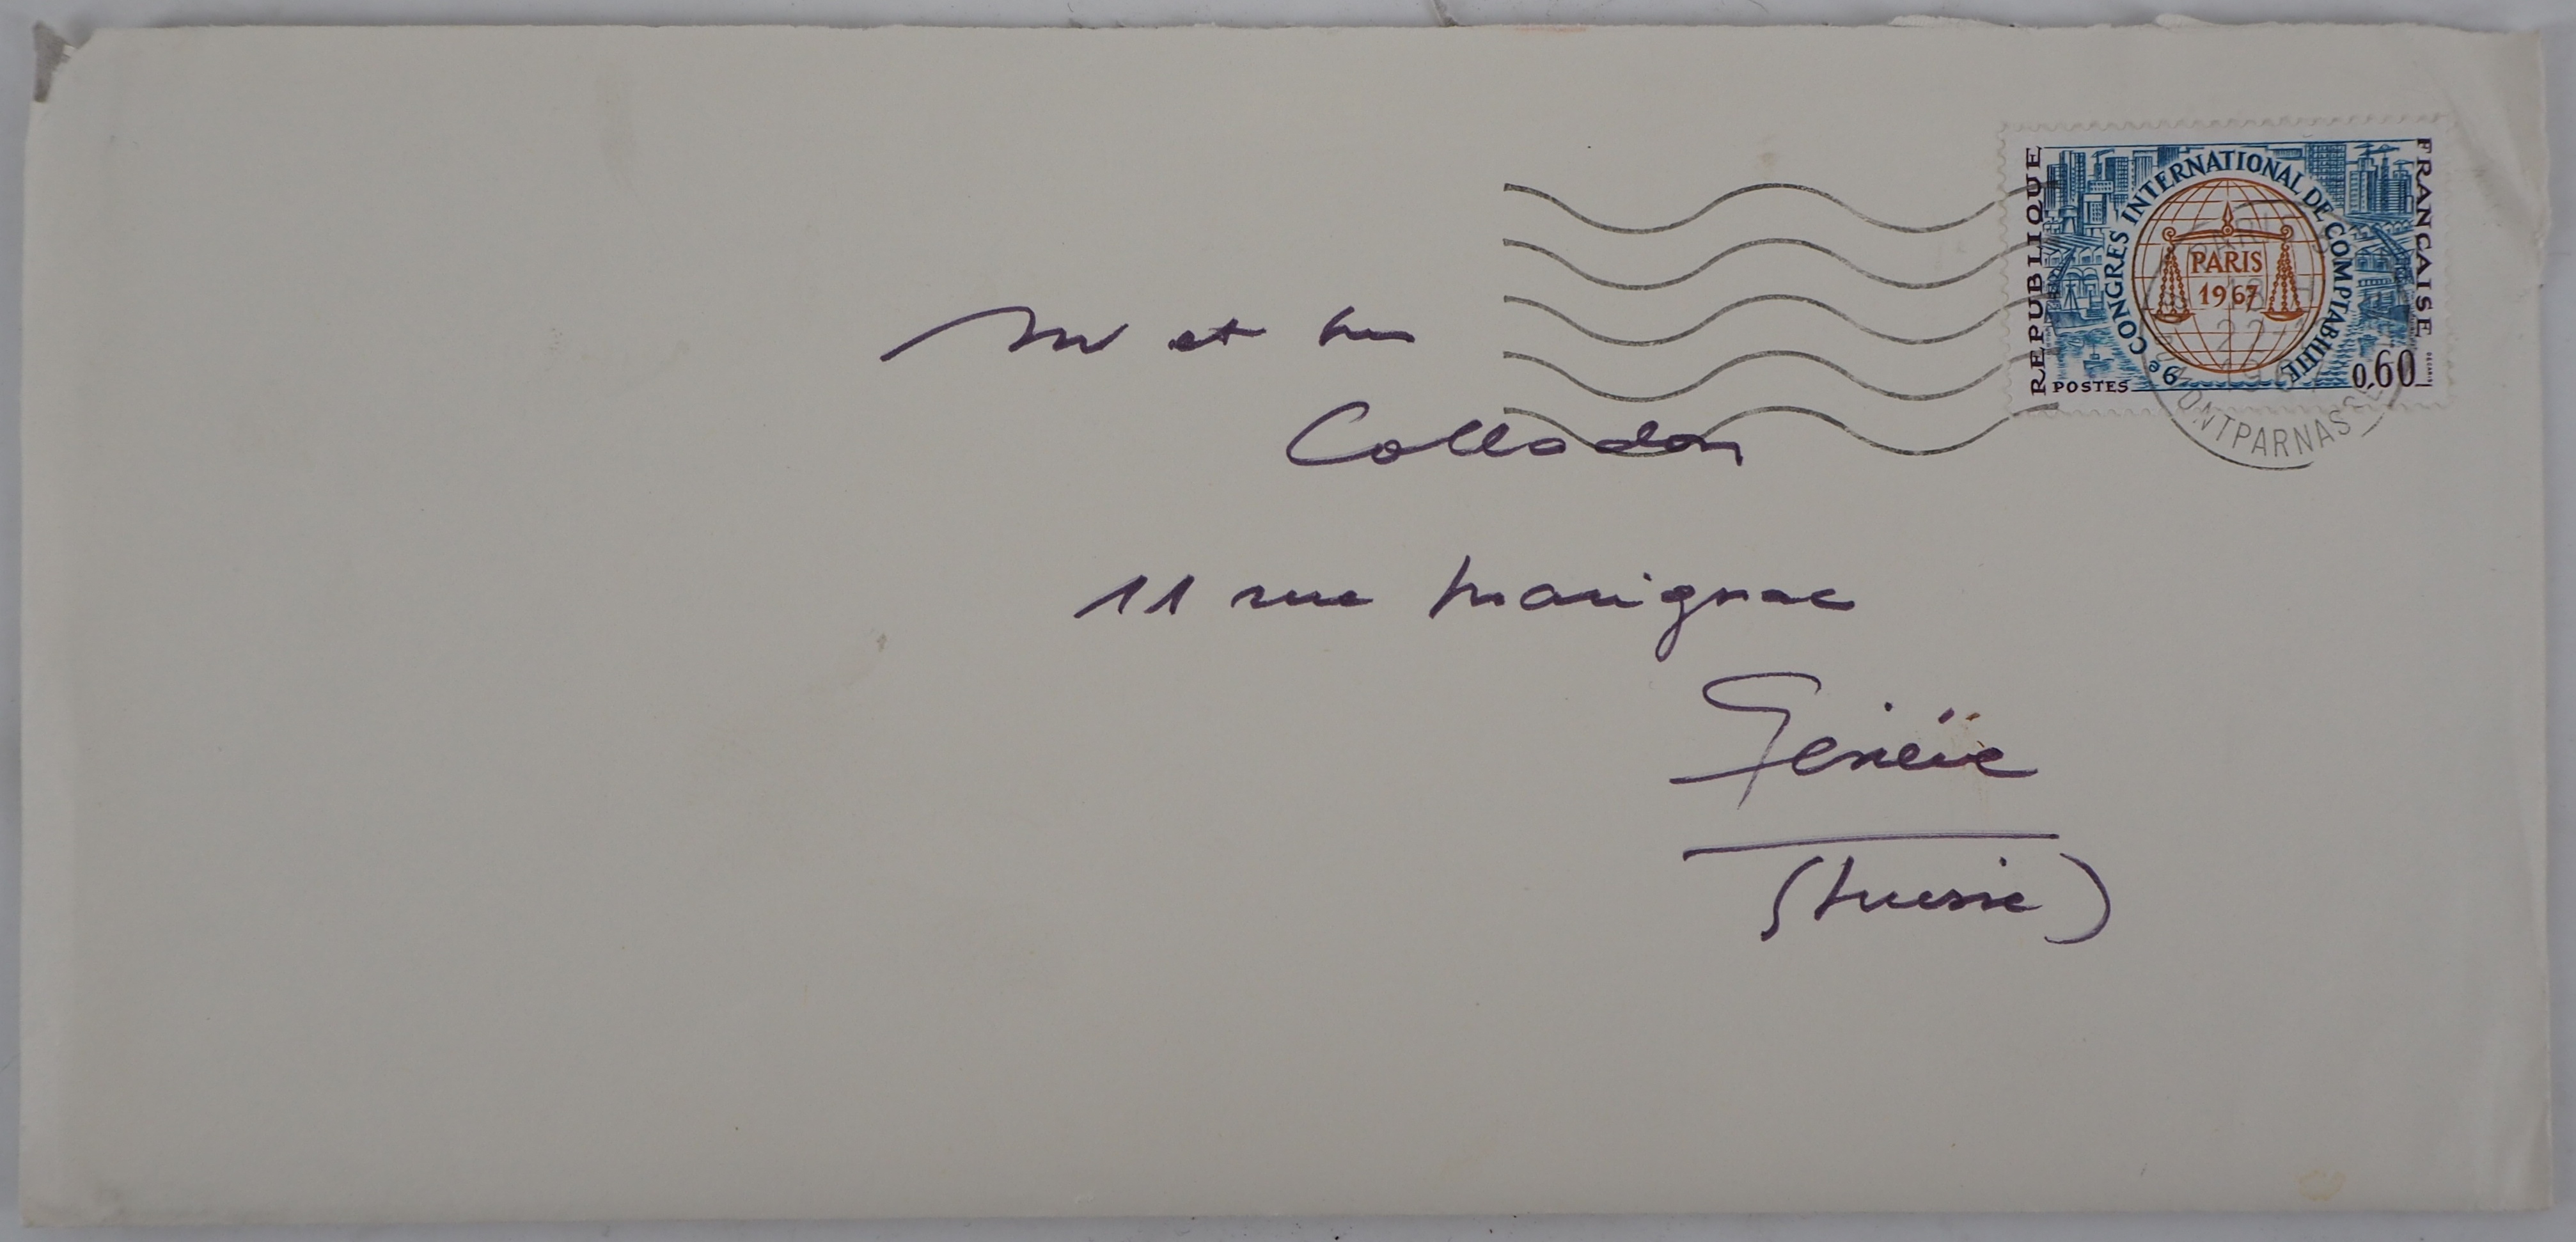 REPUBLIQUE FRANCAISE
9e CONGRES INTERNATIONAL DE COMPTABILITE
PARIS
1967
POSTES
0,60
MONTPARNASSE
22
Mr et Mme
Colladon
11 rue Marignac
Genève
(Suisse)